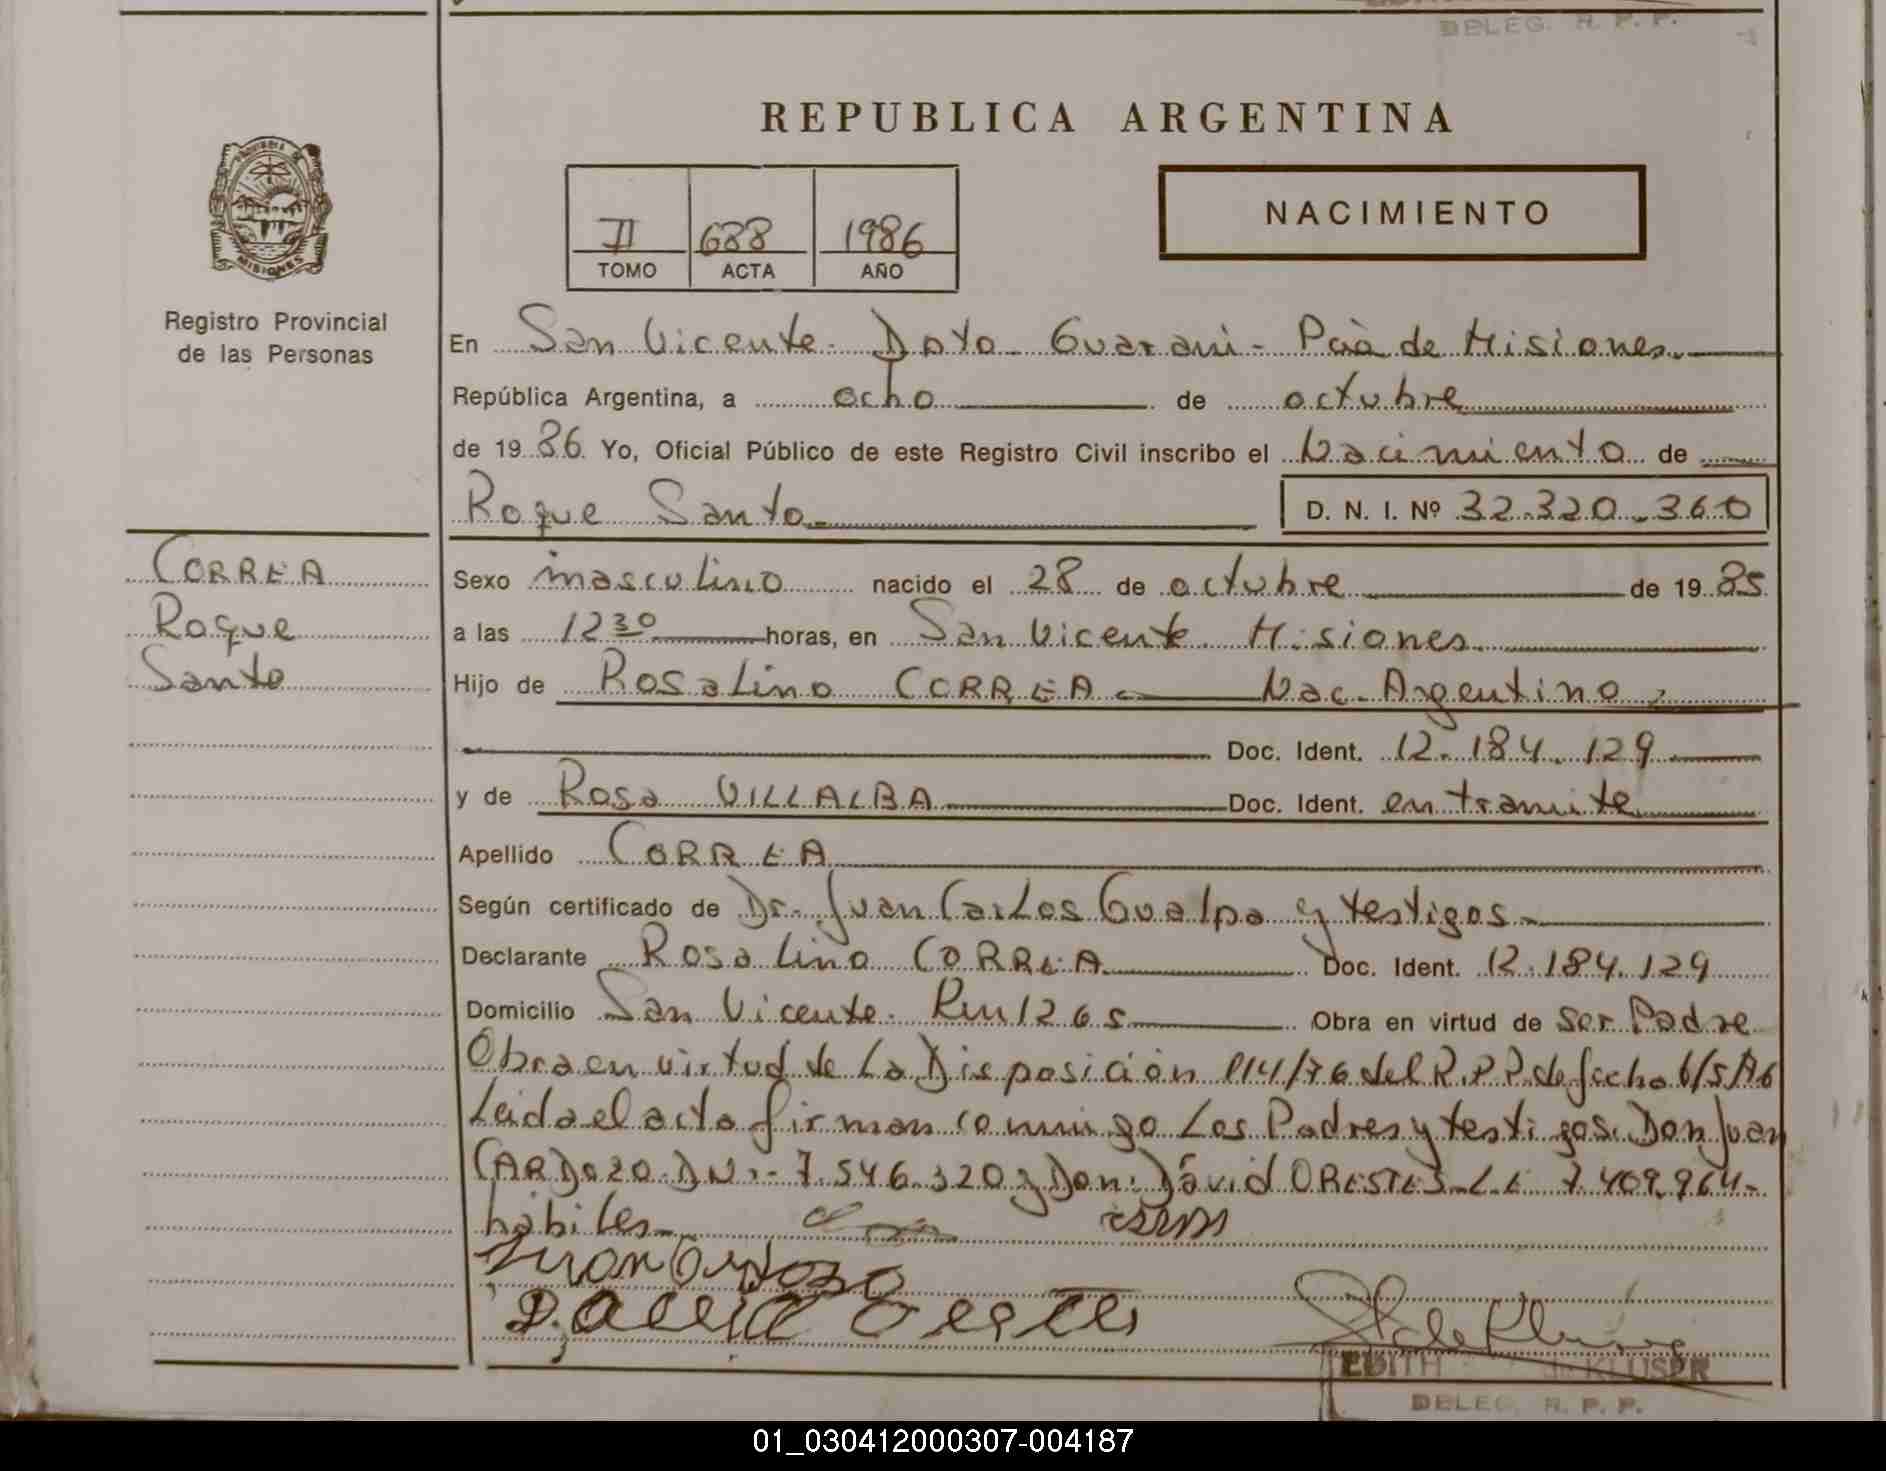 DELEG. R. P. P.
REPUBLICA ARGENTINA
II 688 1986
TOMO ACTA AÑO
NACIMIENTO
PROVINCIA DE
MISIONES
Registro Provincial
de las Personas
En San Vicente. Dpto. Guarani - Pcia de Misiones.
República Argentina, a ocho de octubre
de 1986 Yo, Oficial Público de este Registro Civil inscribo el Nacimiento de
Roque Santo D. N. I. Nº 32.320.360
CORREA
Roque
Santo
Sexo masculino nacido el 28 de octubre de 1985
a las 12 30 horas, en San Vicente Misiones.
Hijo de Rosalino CORREA Nac. Argentino
Doc. Ident. 12.184.129
y de Rosa VILLALBA Doc. Ident. en tramite
Apellido CORREA
Según certificado de Dr. Juan Carlos Gualpa y testigos.
Declarante Rosalino CORREA Doc. Ident. 12.184.129
Domicilio San Vicente. Km 1265 Obra en virtud de ser Padre
Obra en virtud de La Disposición 114/76 del R.P.P. de fecha 6/5/76
Leida el acta firman conmigo Los Padres y testigos. Don Juan
CARDOZO. DNI. 7.546.320 y Don: David ORESTES L.E 7.409.964-
habiles.
Juan Cardozo
David Orestes
EDITH de KLUSER
DELEG. R. P. P.
01_030412000307-004187